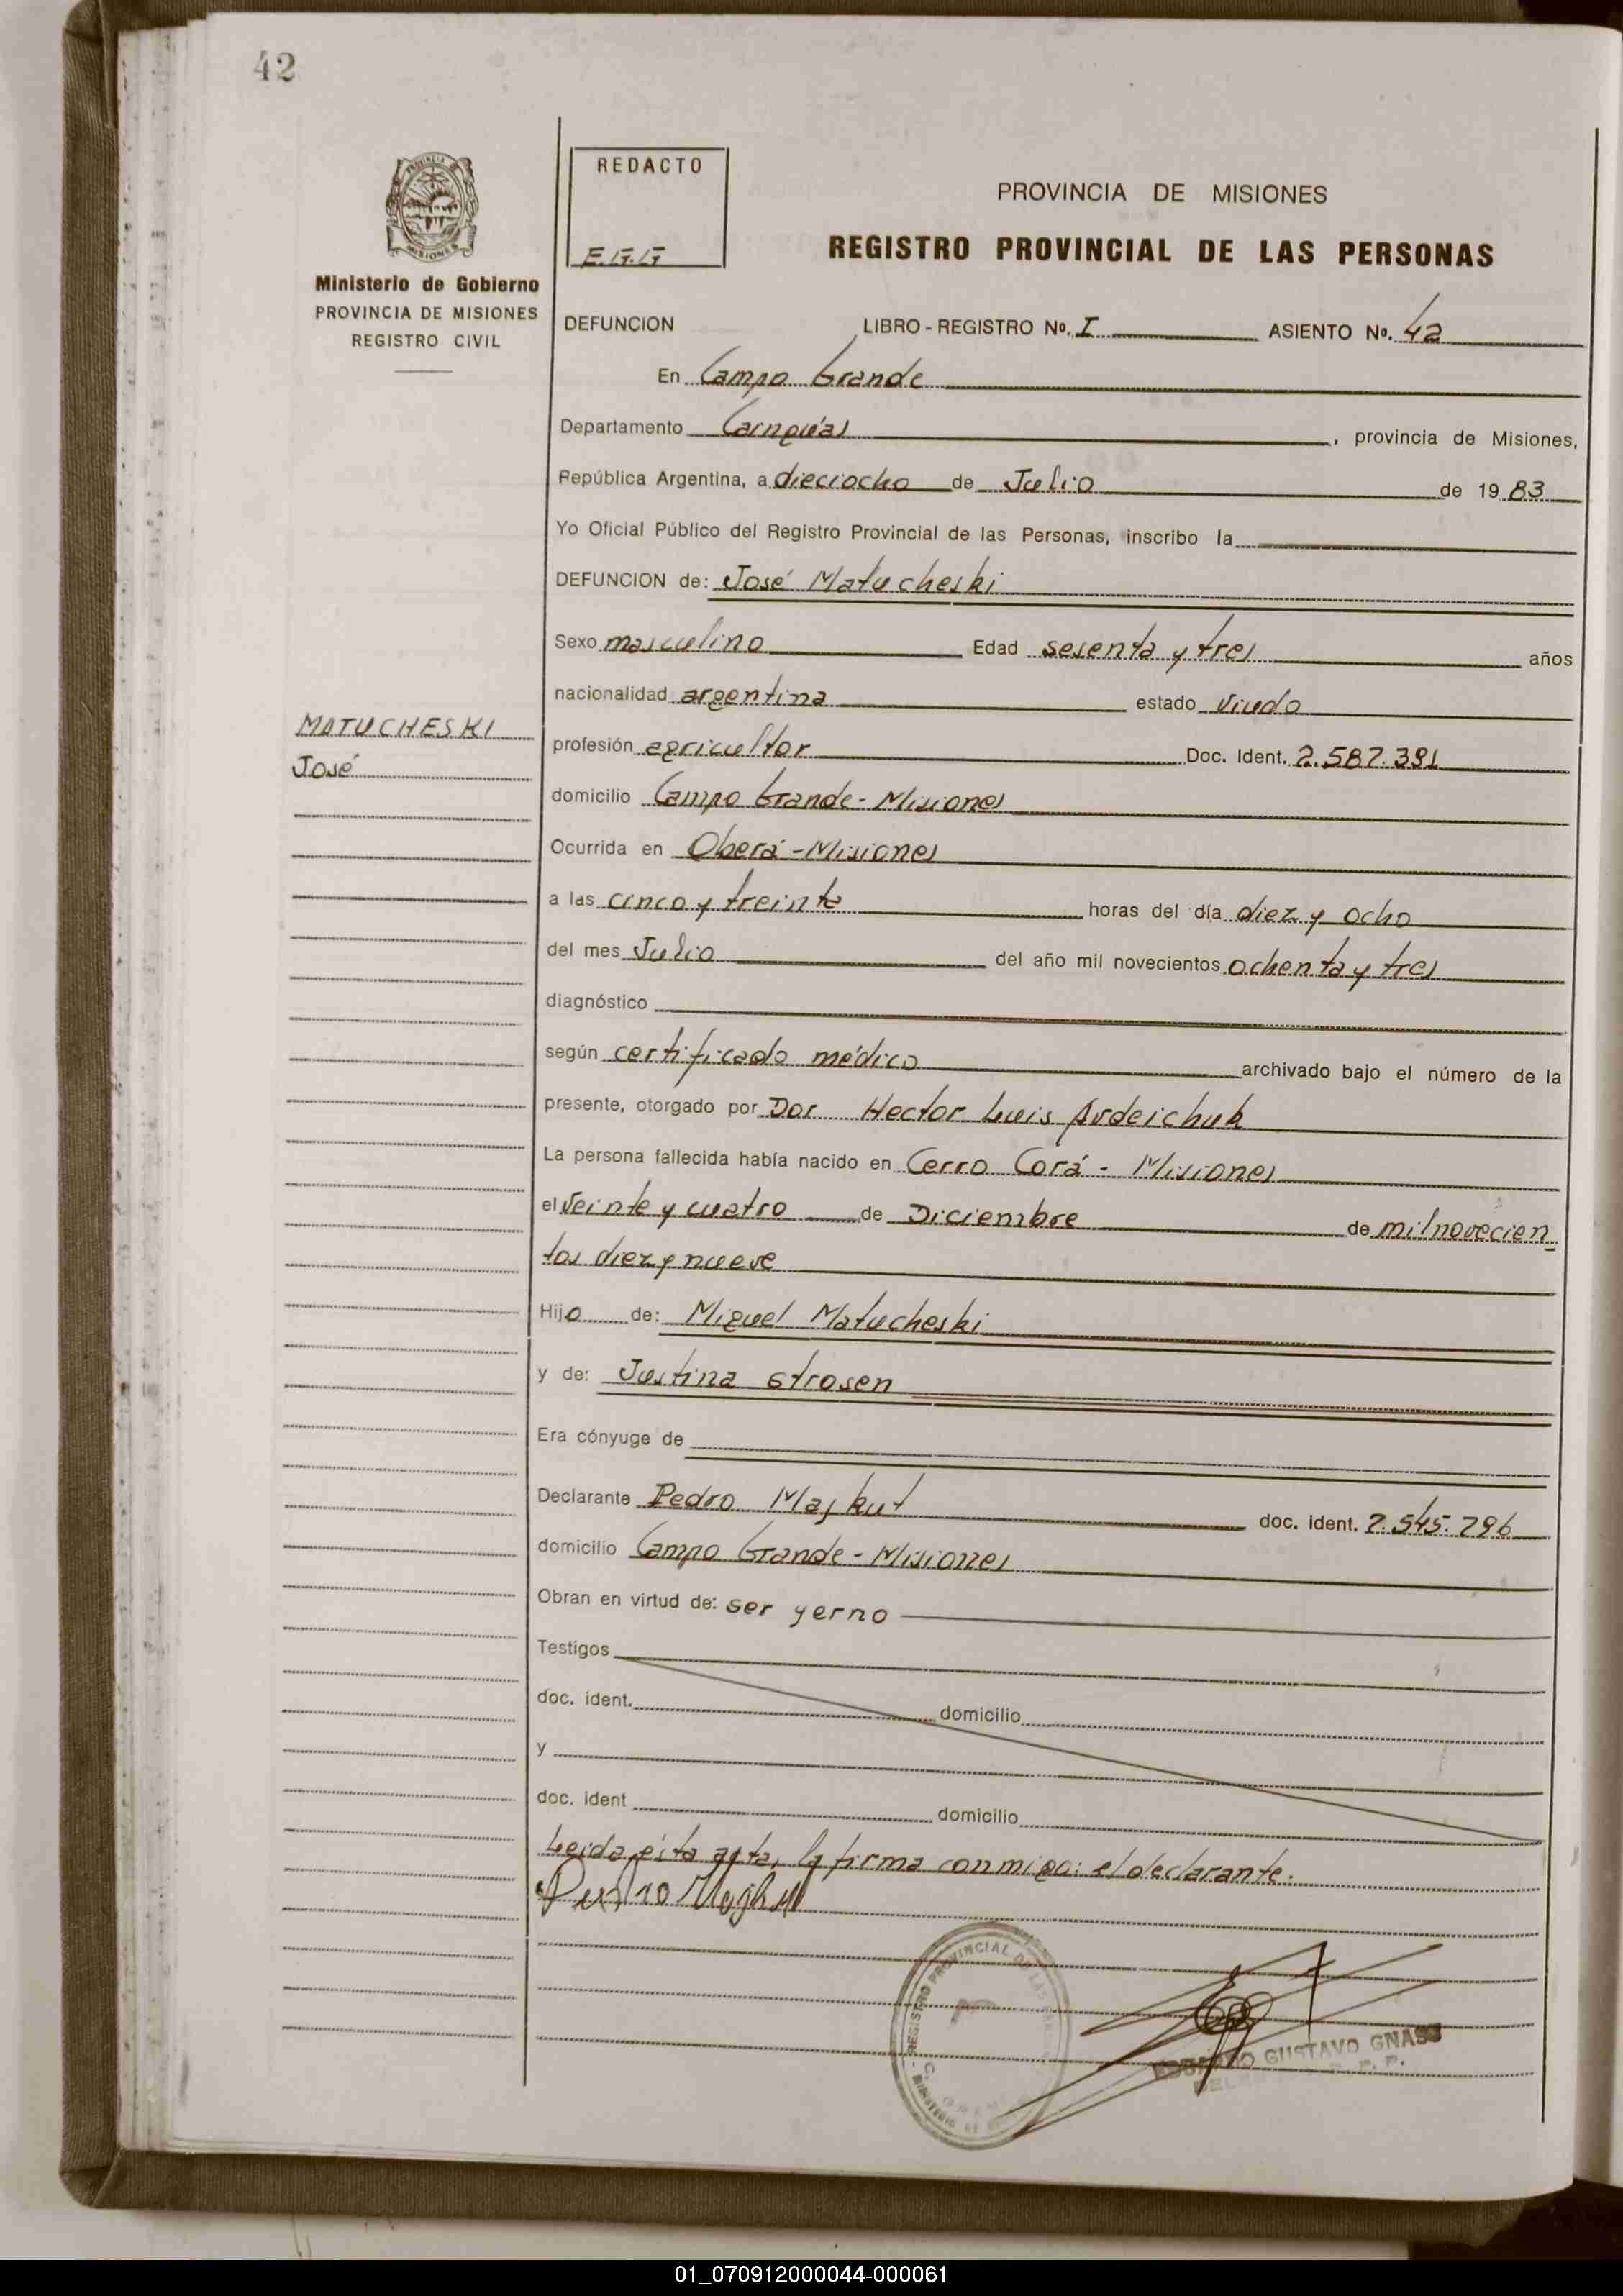 42
REDACTO
E.G.G
PROVINCIA DE MISIONES
REGISTRO PROVINCIAL DE LAS PERSONAS
Ministerio de Gobierno
PROVINCIA DE MISIONES
REGISTRO CIVIL
DEFUNCION LIBRO - REGISTRO Nº. I ASIENTO Nº. 42
En Campo Grande
Departamento Cainguás, provincia de Misiones,
República Argentina, a dieciocho de Julio de 19 83
Yo Oficial Público del Registro Provincial de las Personas, inscribo la
DEFUNCION de: José Matucheski
Sexo masculino Edad sesenta y tres años
nacionalidad argentina estado viudo
MATUCHESKI
José
profesión agricultor Doc. Ident. 2.587.391
domicilio Campo Grande - Misiones
Ocurrida en Oberá - Misiones
a las cinco y treinta horas del día diez y ocho
del mes Julio del año mil novecientos ochenta y tres
diagnóstico
según certificado médico archivado bajo el número de la
presente, otorgado por Dor Hector Luis Avdeichuk
La persona fallecida había nacido en Cerro Corá - Misiones
el veinte y cuatro de Diciembre de mil novecien
tos diez y nueve
Hijo de: Miguel Matucheski
y de: Justina Strosen
Era cónyuge de
Declarante Pedro Majkut doc. ident. 7.545.796
domicilio Campo Grande - Misiones
Obran en virtud de: ser yerno
Testigos
doc. ident. domicilio
y
doc. ident domicilio
Leida ésta acta, la firma conmigo: el declarante.
Pedro Majkut
REGISTRO PROVINCIAL DE LAS
GUSTAVO GNASS
01_070912000044-000061